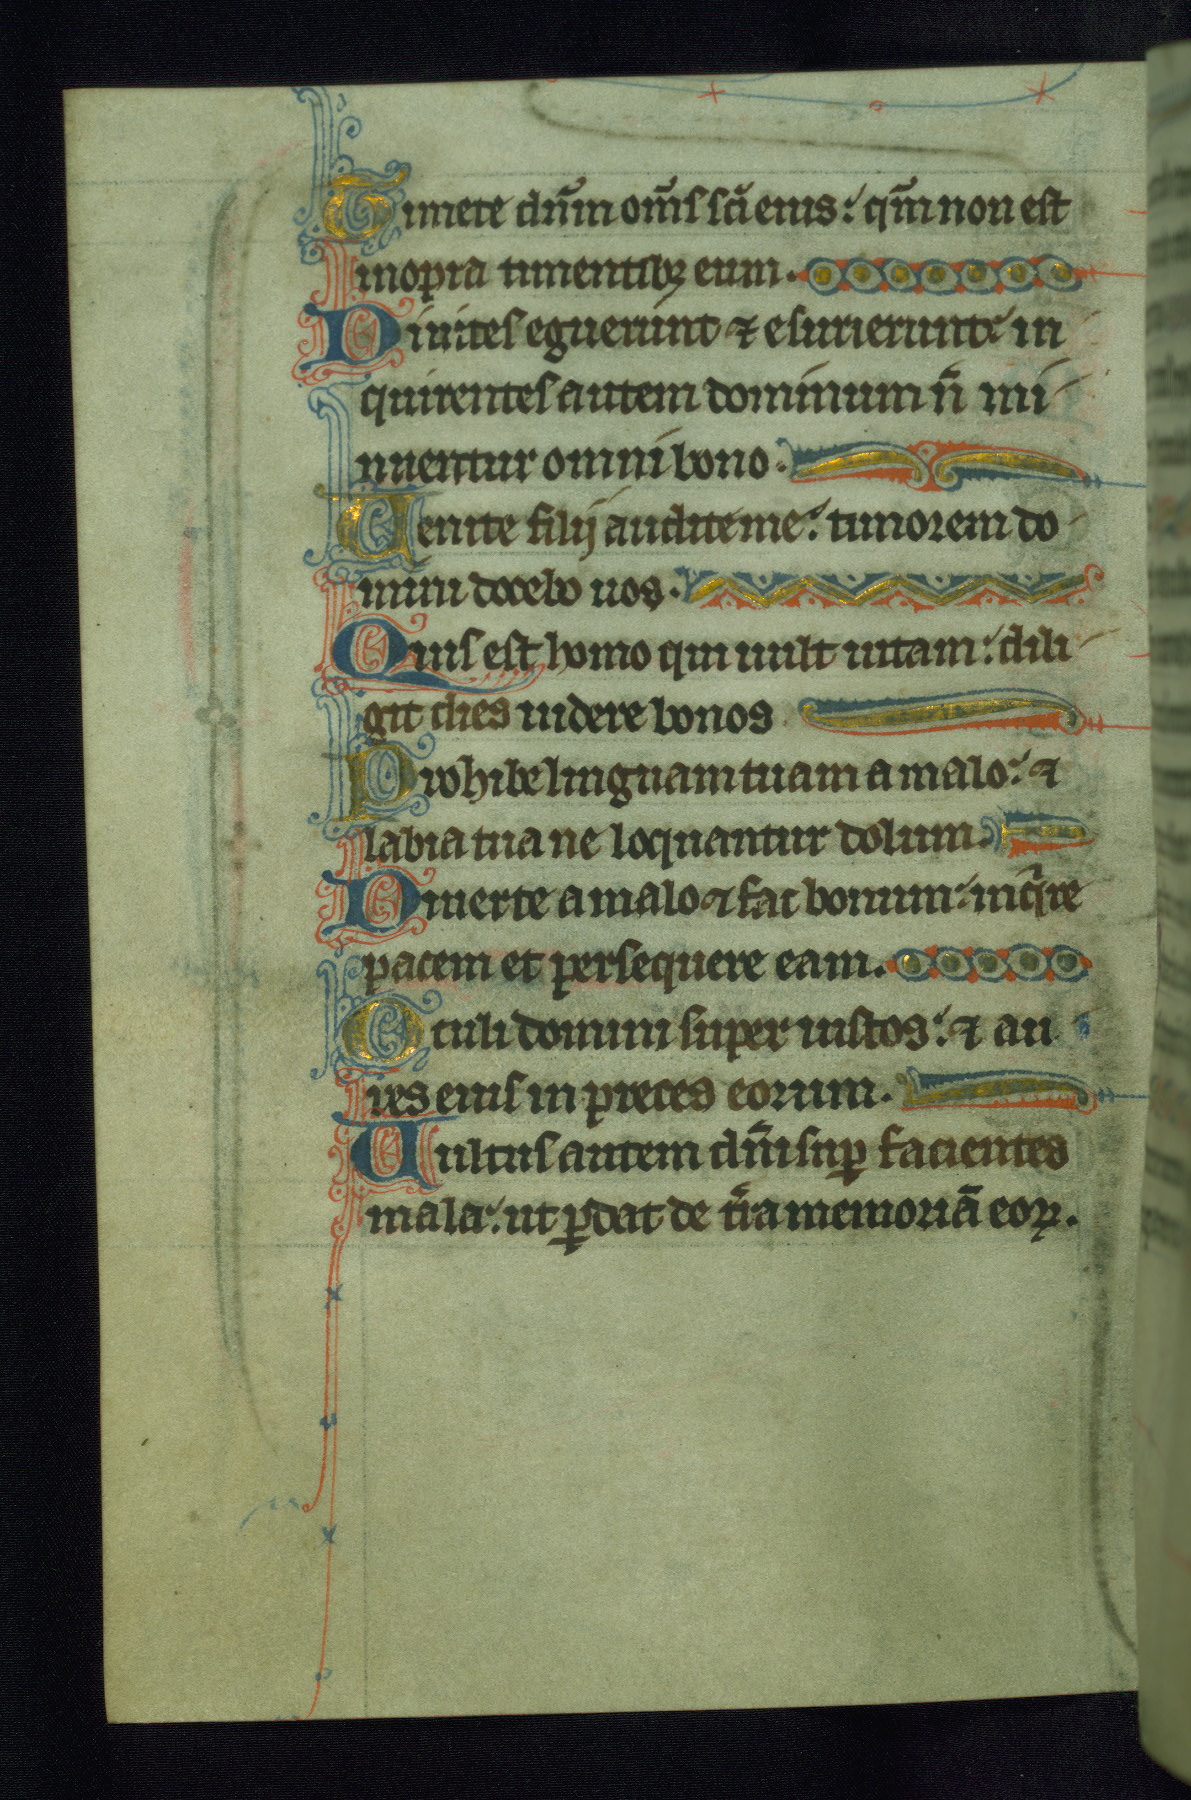 Timete dn̄m om̄s sc̄i eius: qm̄ non est
inopia timentibꝫ eum.
Diuites eguerunt ⁊ esurierunt: in
quirentes autem dominum n̄ mi
nuentur omni bono.
Uenite filij audite me: timorem do
mini docebo uos.
Quis est homo qui uult uitam: dili
git dies uidere bonos
Prohibe linguam tuam a malo: ⁊
labia tua ne loquantur dolum.
Diuerte a malo ⁊ fac bonum: inqͥre
pacem et persequere eam.
Oculi domini super iustos: ⁊ au
res eius in preces eorum.
Uultus autem dn̄i suꝑ facientes
mala: ut ꝑdat de t̄ra memoriā eoꝝ.